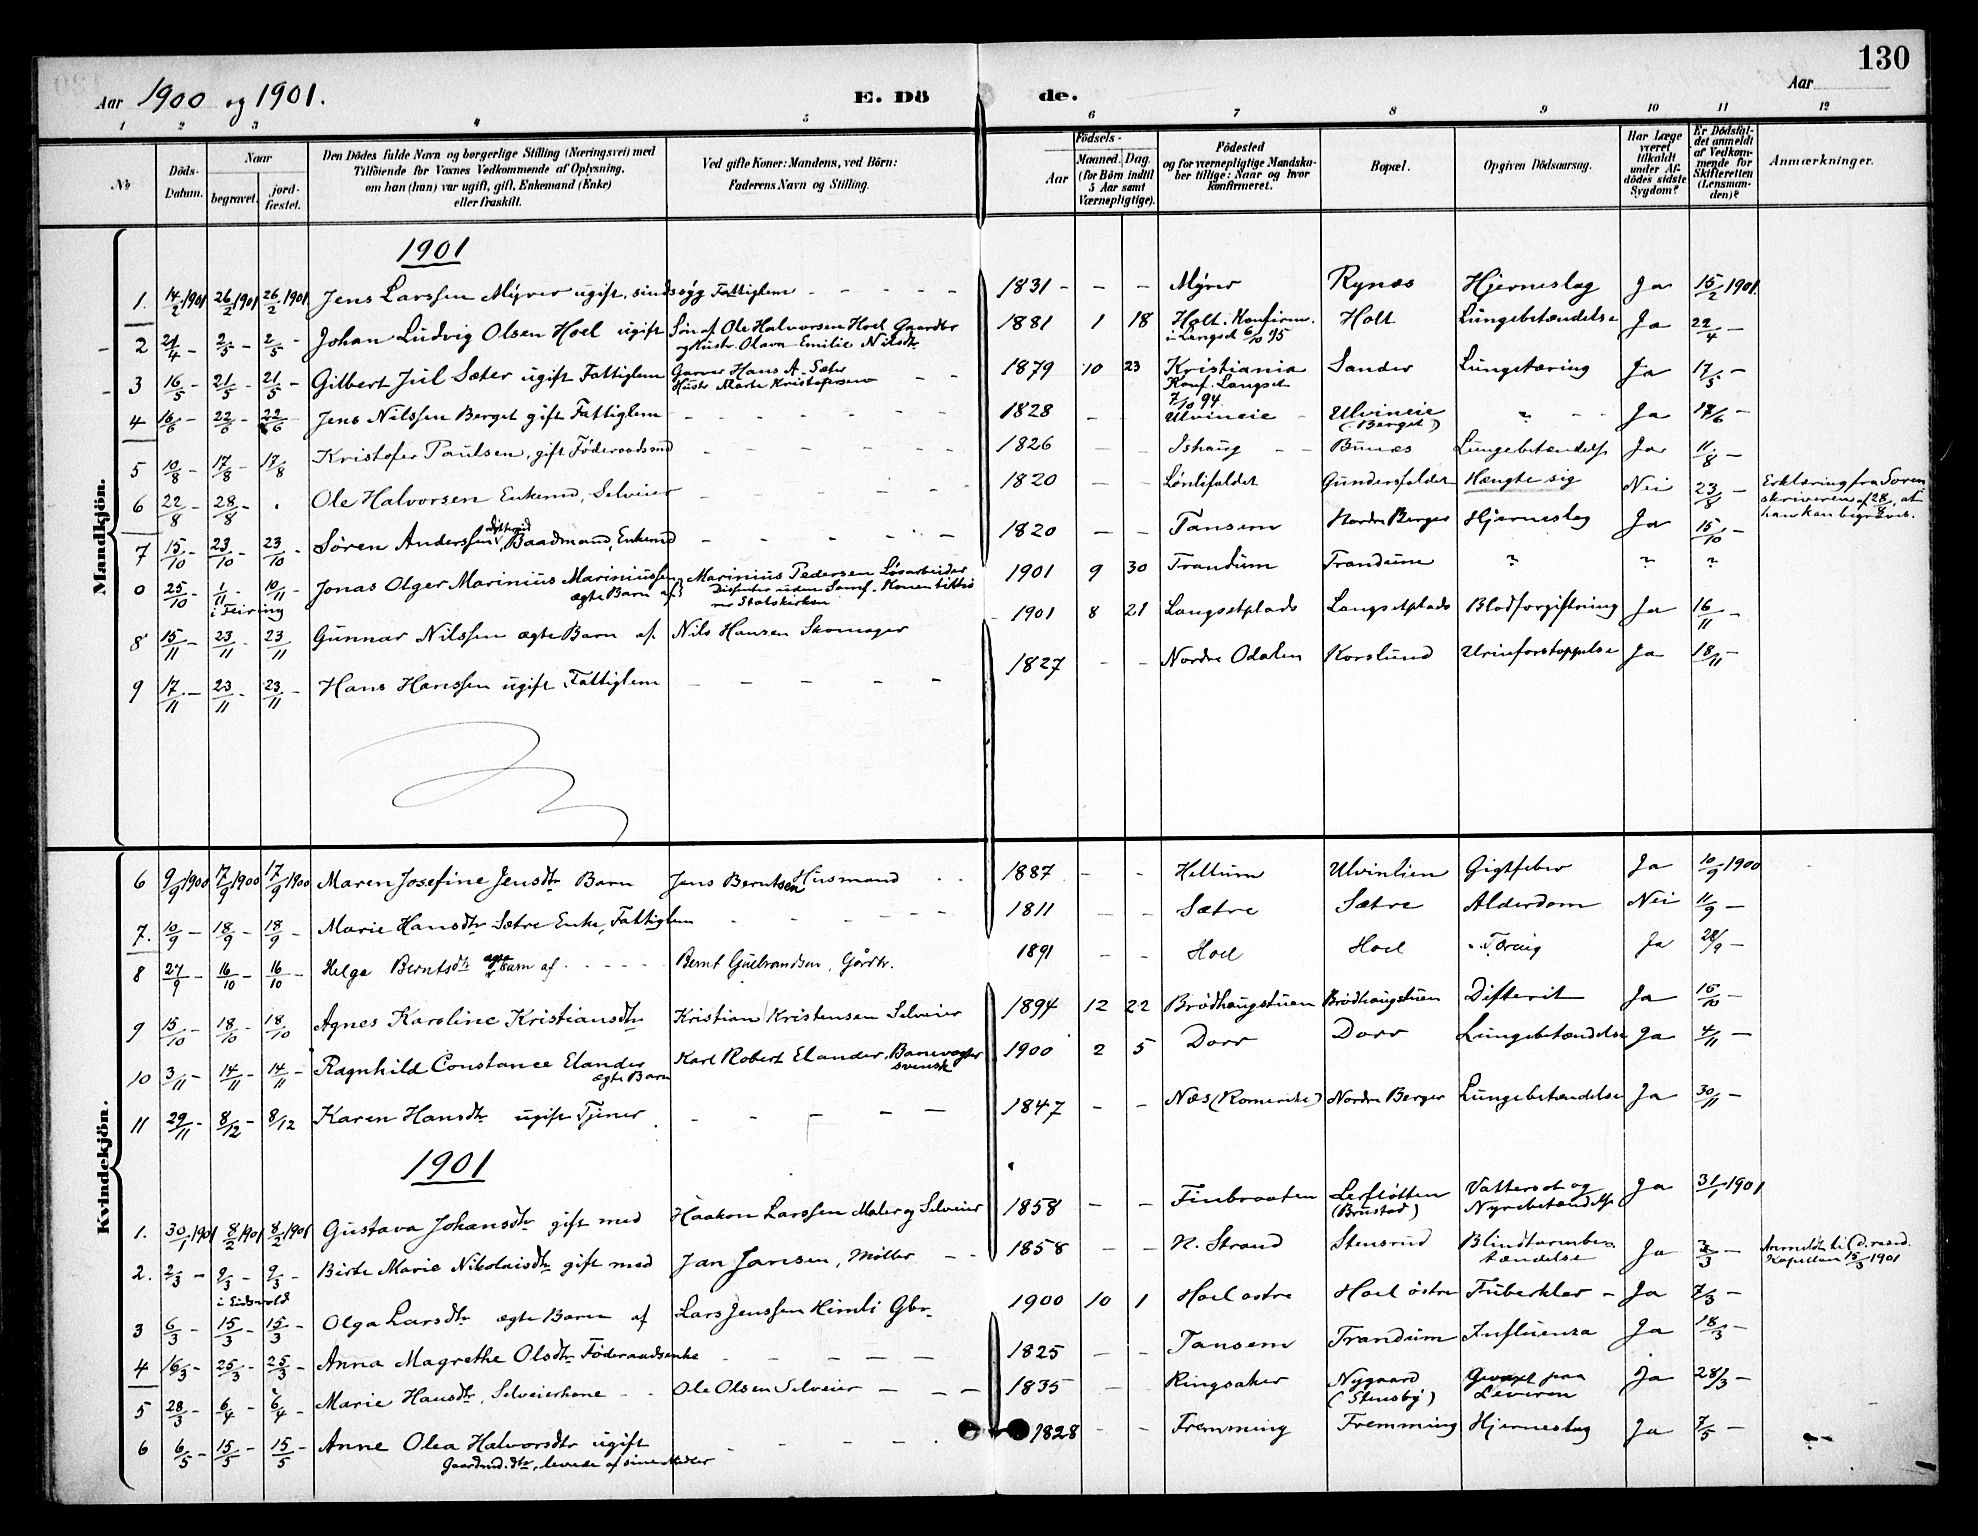 130
Aar 1900 og 1901.
E. Dö de.
Aar
1 2 3 4 5 6 7 8 9 10 11 12
No
Döds-Datum.
Naar begravet. jordfæstet.
Den Dödes fulde Navn og borgerlige Stilling (Næringsvei) med
Tilföiende for Voxnes Vedkommende af Oplysning,
om han (hun) var ugift, gift, Enkemand (Enke)
eller fraskilt.
Ved gifte Koner: Mandens, ved Börn:
Faderens Navn og Stilling.
Födsels-
Aar
Maaned. Dag.
(for Börn indtil
5 Aar samt
Værnepligtige).
Födested
og for værnepligtige Mandska-
ber tillige: Naar og hvor
konfirmeret.
Bopæl.
Opgiven Dödsaarsag.
Har Læge
været
tilkaldt
under Af-
dödes sidste
Sygdom?
Er Dödsfal-
det anmeldt
af Vedkom-
mende for
Skifteretten
(Lensman-
den)?
Anmærkninger.
Mandkjön.
1901
1. 14/2 1901 26/2 1901 26/2 1901 Jens Larssen Myrer ugift, sindssyg Fattiglem - - - - 1831 - - - Myrer Rynæs Hjerneslag Ja 15/2 1901.
2 21/4 - 2/5 - 2/5 - Johan Ludvig Olsen Hoel ugift Søn af Ole Halvorsen Hoel Gaardbr 1881 1 18 Holt. Konfirm. Holt Lungebetændelse Ja 22/4 -
og Hustr. Olava Emilie Nilsdtr i Langset 6/10 95
3 16/5 - 21/5 - 21/5 - Gilbert Jul Sæter ugift Fattiglem Garver Hans A. Sæter 1879 10 23 Kristiania Sander Lungetæring Ja 17/5 -
Hustr Marte Kristofersen - - Konf. Langset
7/10 94
4 16/6 - 22/6 - 22/6 Jens Nilssen Berget gift Fattiglem - - - - 1828 - Ulvineie Ulvineie " - - Ja 17/6 -
(Berget)
5 10/8 - 17/8 - 17/8 Kristofer Paulsen, gift Föderaadsmd - - - - 1826 - - Ishaug - - Bunæs Lungebetændelse Ja 11/8 -
6 22/8 - 28/8 - . Ole Halvorsen Enkemd, Selveier - - - - 1820 - - Lønlifaldet Gundersfaldet Hængte sig Nei 23/8 - Erklæring fra Soren
skriveren af 28/8 at
han kan begraves.
7 15/10 - 23/10 - 23/10 - Søren Anderssen Baadmand, Enkemd - - - - 1820 - - Tansem Nordre Berger Hjerneslag Ja 15/10 -
0 25/10 - 1/11 - 10/11 - Jonas Olger Marinius Mariniussen Marinius Pedersen Løsarbeider 1901 9 30 Trandum Trandum " " "
i Feiring ægte Barn af Disenter uden Samf. Konen
Statskirken
8 15/11 - 23/11 - 23/11 Gunnar Nilssen ægte Barn af. Nils Hansen Skomager 1901 8 21 Langsetplads Langsetplads Blodforgiftning Ja 16/11 -
9 17/11 - 23/11 - 23/11 - Hans Hanssen ugift, Fattiglem - - - - 1827 - - Nordre Odalen Korslund Urinforstoppelse Ja 18/11 -
Kvindekjön.
6 9/9 1900 17/9 1900 17/9 1900 Maren Josefine Jensdtr Barn Jens Berntsen Husmand - - 1887 - - Hellum Ulvinlien Gigtfeber Ja 10/9 1900
7. 10/9 - 18/9 - 18/9 - Marie Hansdtr Sætre Enke, Fattiglem - - - - 1811 - - Sætre Sætre Alderdom Nei 11/9 -
8 27/9 - 16/10 - 16/10 - Helga Berntsdtr ægte Barn af - - - - Bernt Gulbrandsen, Gårdbr. 1891 - - Hoel Hoel Tæring Ja 28/9 -
9 15/10 - 18/10 - 18/10 Agnes Karoline Kristiansdtr Kristian Kristensen Selveier 1894 12 22 Brödhaugstuen Brödhaugstuen Difterit Ja 16/10 -
10 3/11 - 14/11 - 14/11 - Ragnhild Constance Elander Karl Robert Elander, Banevogter 1900 2 5 Dorr Dorr Lungebetændelse Ja 4/11 -
ægte Barn svensk
11 29/11 - 8/12 - 8/12 Karen Hansdtr ugift Tjener - - - - 1847 - - Næs (Romerike) Nordre Berger Lungebetændelse Ja 30/11 -
1901
1. 30/1 1901 8/2 1901 8/2 1901 Gustava Johansdtr gift med Haakon Larssen Maler og Selveier 1858 - - Finbraaten Lersløtten Vattersot og Ja 31/1 1901
(Brustad) Nyrebetændelse
2. 2/3 - 9/3 - 9/3 - Birte Marie Nikolaisdtr gift med Jan Jansen, Møller - - 1858 - - N. Strand Stensrud Blindtarmbe- Ja 3/3 - Anmeldt til
i Eidsvold tændelse Kapellan 15/3 1901
3 6/3 - 15/3 - 15/3 - Olga Larsdtr ægte Barn af Lars Jenssen Himli Gbr. 1900 10 1 Hoel østre Hoel østre Tuberkler - Ja 7/3 -
4 16/3 - 25/3 - 25/3 - Anna Magrethe Olsdtr Föderaadsenke - - - - 1825 - - Tansem Trandum Influenza Ja 18/3 -
5 28/3 - 6/4 - 6/4 - Marie Hansdtr, Selveierkone - - Ole Olsen Selveier - - - 1835 - Ringsaker Nygaard Gevæxt paa Ja 28/3 -
(Stensby) Leveren
6 6/5 - 15/5 - 15/5 - Anne Olea Halvorsdtr ugift - - - - 1828 - - Fremming Fremming Hjerneslag Ja 7/5 -
Gaardmd.dtr, levede af sine Midler